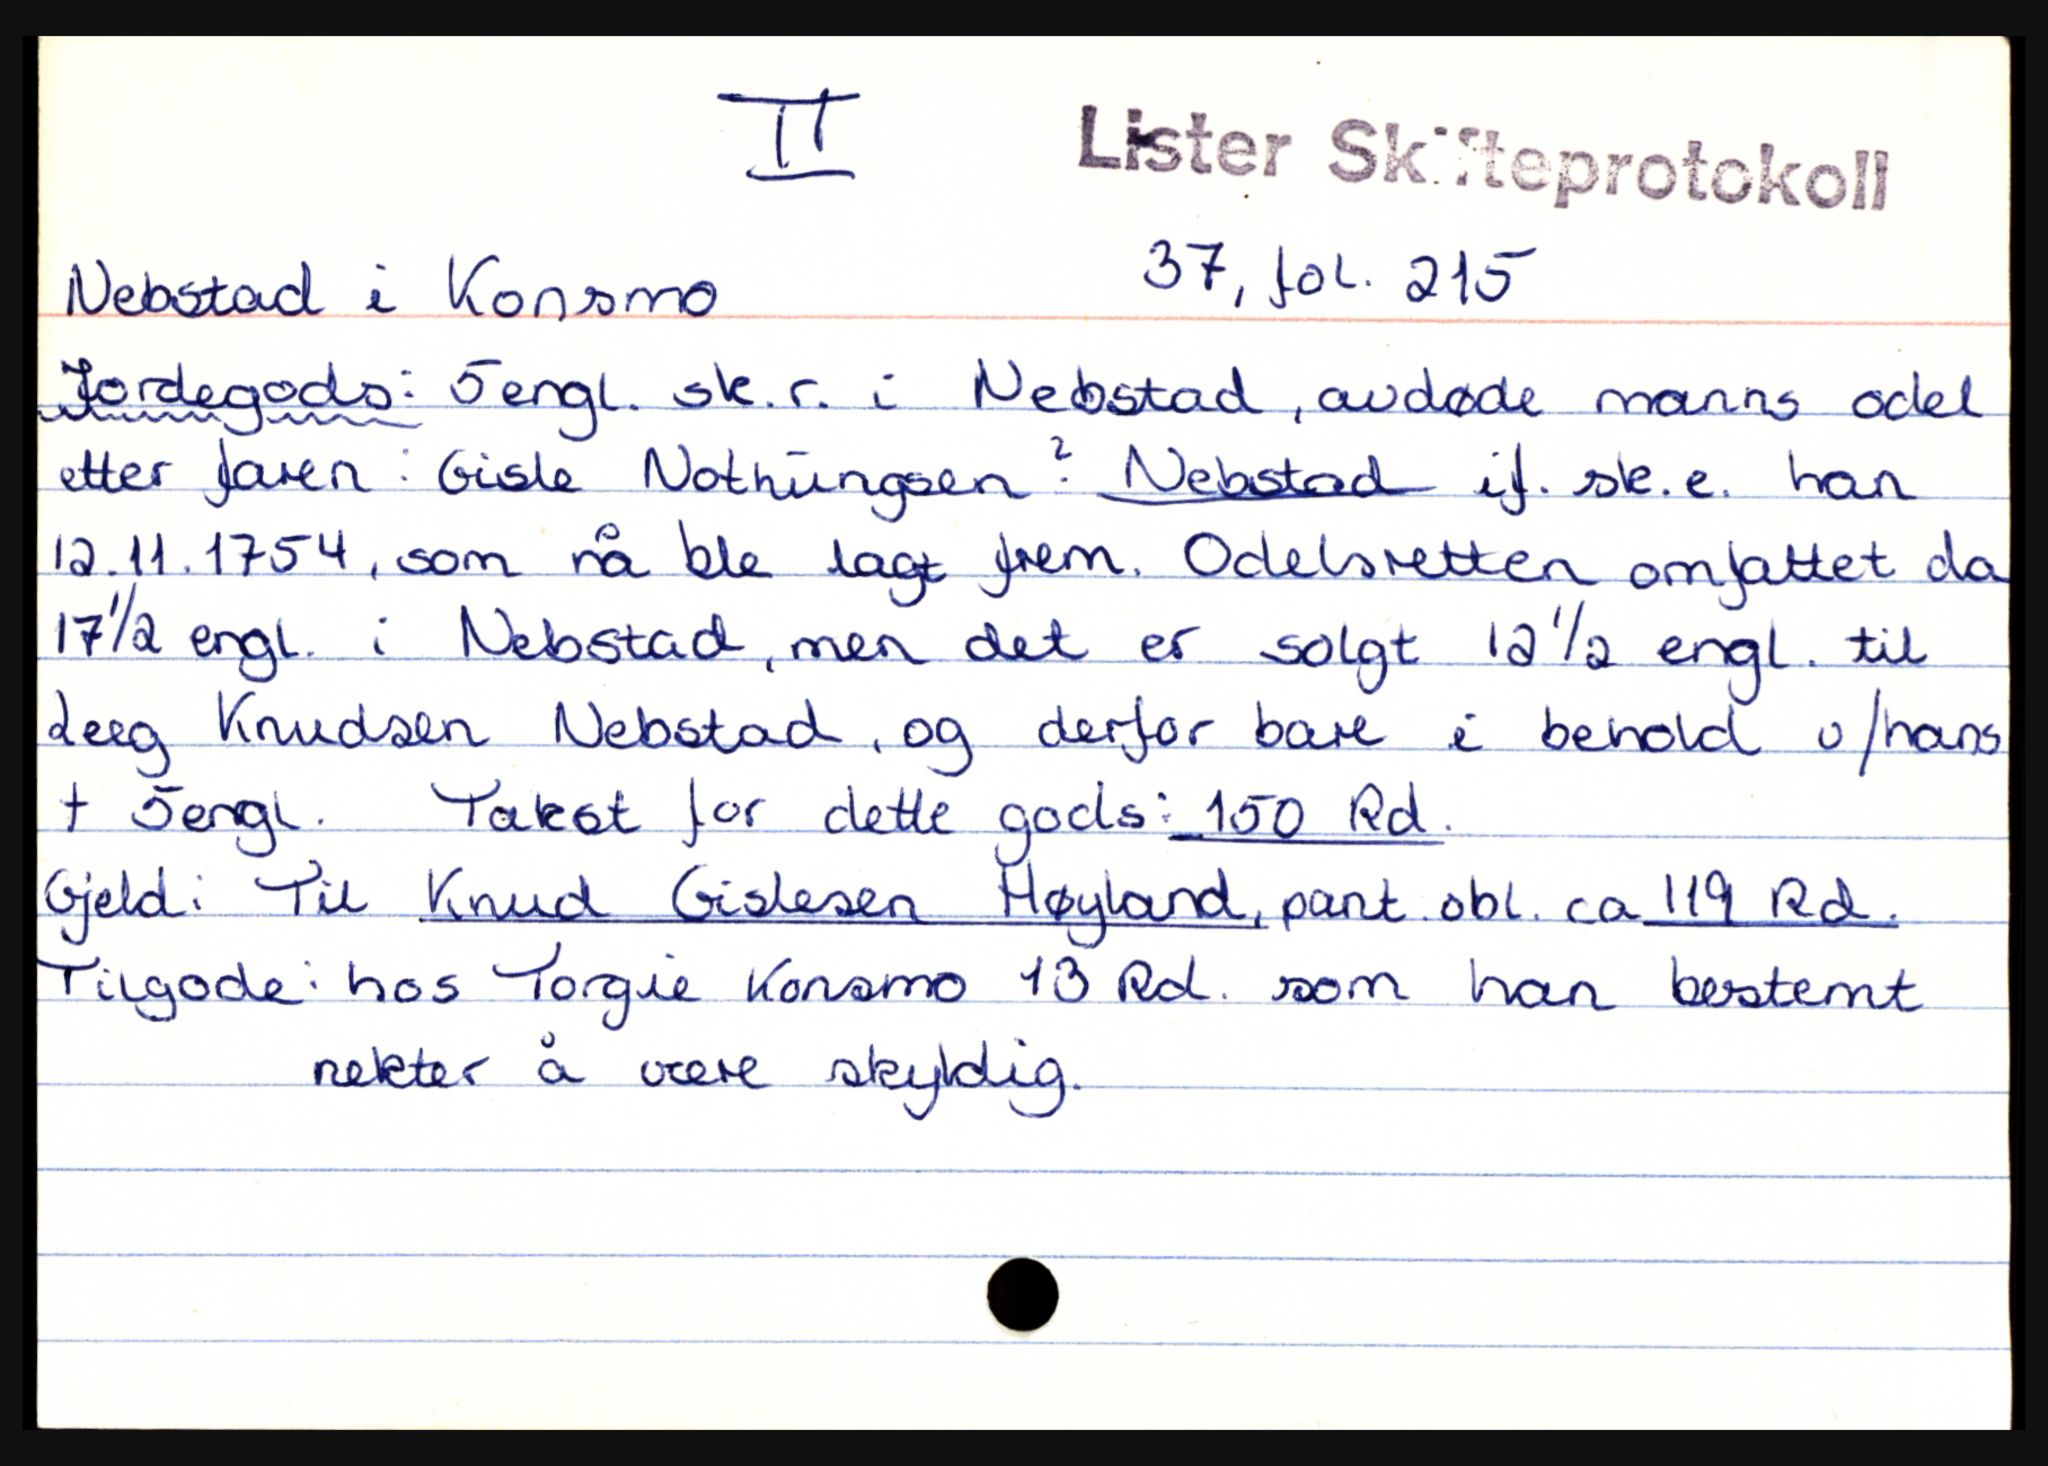 II
Lister Skifteprotokoll
Nebstad i Konsmo
37, fol. 215
Jordegods: 5 engl. sk.r. i Nebstad, avdøde manns odel
etter faren: Gisle Nothüngsen? Nebstad if. sk.e. han
12.11.1754, som nå ble lagt frem. Odelsretten omfattet da
17 1/2 engl. i Nebstad, men det er solgt 12 1/2 engl. til
Leeg Knudsen Nebstad, og derfor bare i behold v/hans
† 5 engl. Takst for dette gods: 150 Rd.
Gjeld: Til Knud Gislesen Høyland, pant. obl. ca 119 Rd.
Tilgode: hos Torgie Konsmo 13 Rd. som han bestemt
nekter å være skyldig.